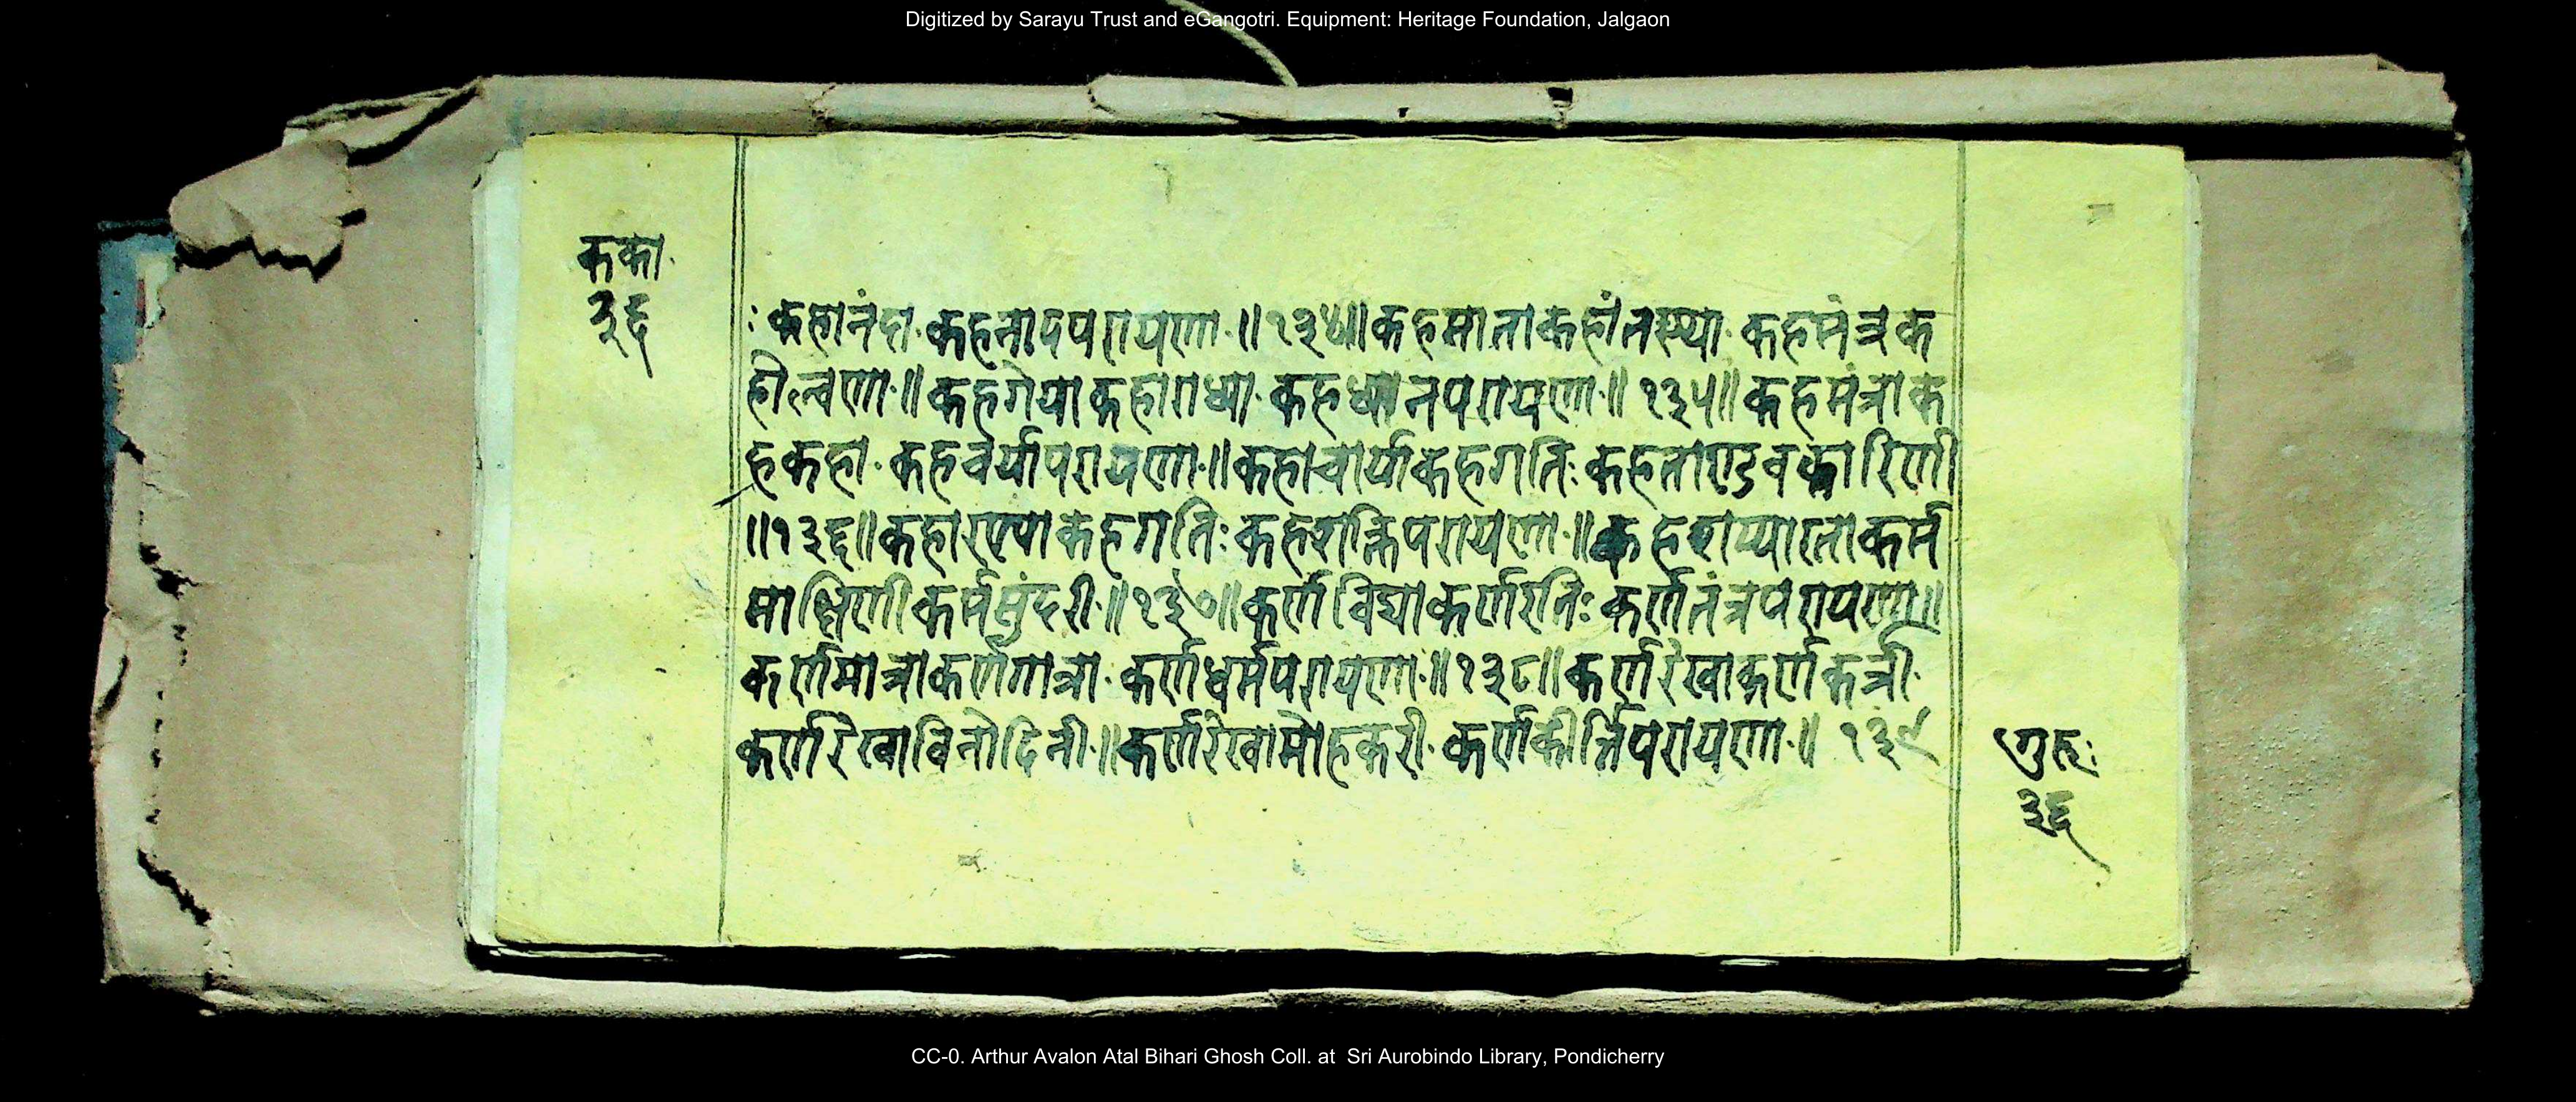 Digitized by Sarayu Trust and eGangotri. Equipment: Heritage Foundation, Jalgaon
कका
३६
: कहानंदा. कहनादपरायणा. ॥१३४॥ कहमाताकहांतस्था. कहमंत्रक
हौल्वणा.॥ कहगेयाकहाराध्या. कहध्यानपरायणा.॥ १३५॥ कहमंत्राक
हकहा. कहचर्यापरायणा.॥ कहाचार्याकहगतिः कहताण्डवकारिणी
॥१३६॥ कहारण्याकहगतिः कहशक्तिपरायणा.॥ कर्म
साक्षिणीकर्मसुंदरी.॥१३७॥ कर्णविद्याकर्णरतिः कर्णतंत्रपरायणा॥
कर्णमात्राकर्णगात्रा. कर्णधर्मपरायणा.॥१३८॥ कर्णरेखाकर्णकर्त्री.
कर्णरेखाविनोदिनी.॥कर्णरेखामोहकरी. कर्णकीर्त्तिपरायणा.॥ १३९
गुह्य:
३६
CC-0. Arthur Avalon Atal Bihari Ghosh Coll. at Sri Aurobindo Library, Pondicherry